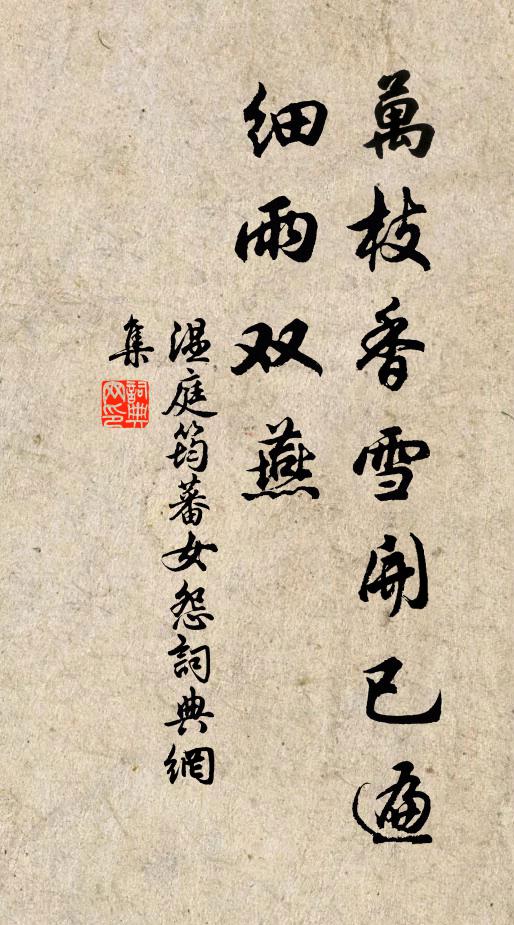 萬枝香雪開已遍
細雨双燕
温庭筠蕃女怨詞典網
集
詞典
网印